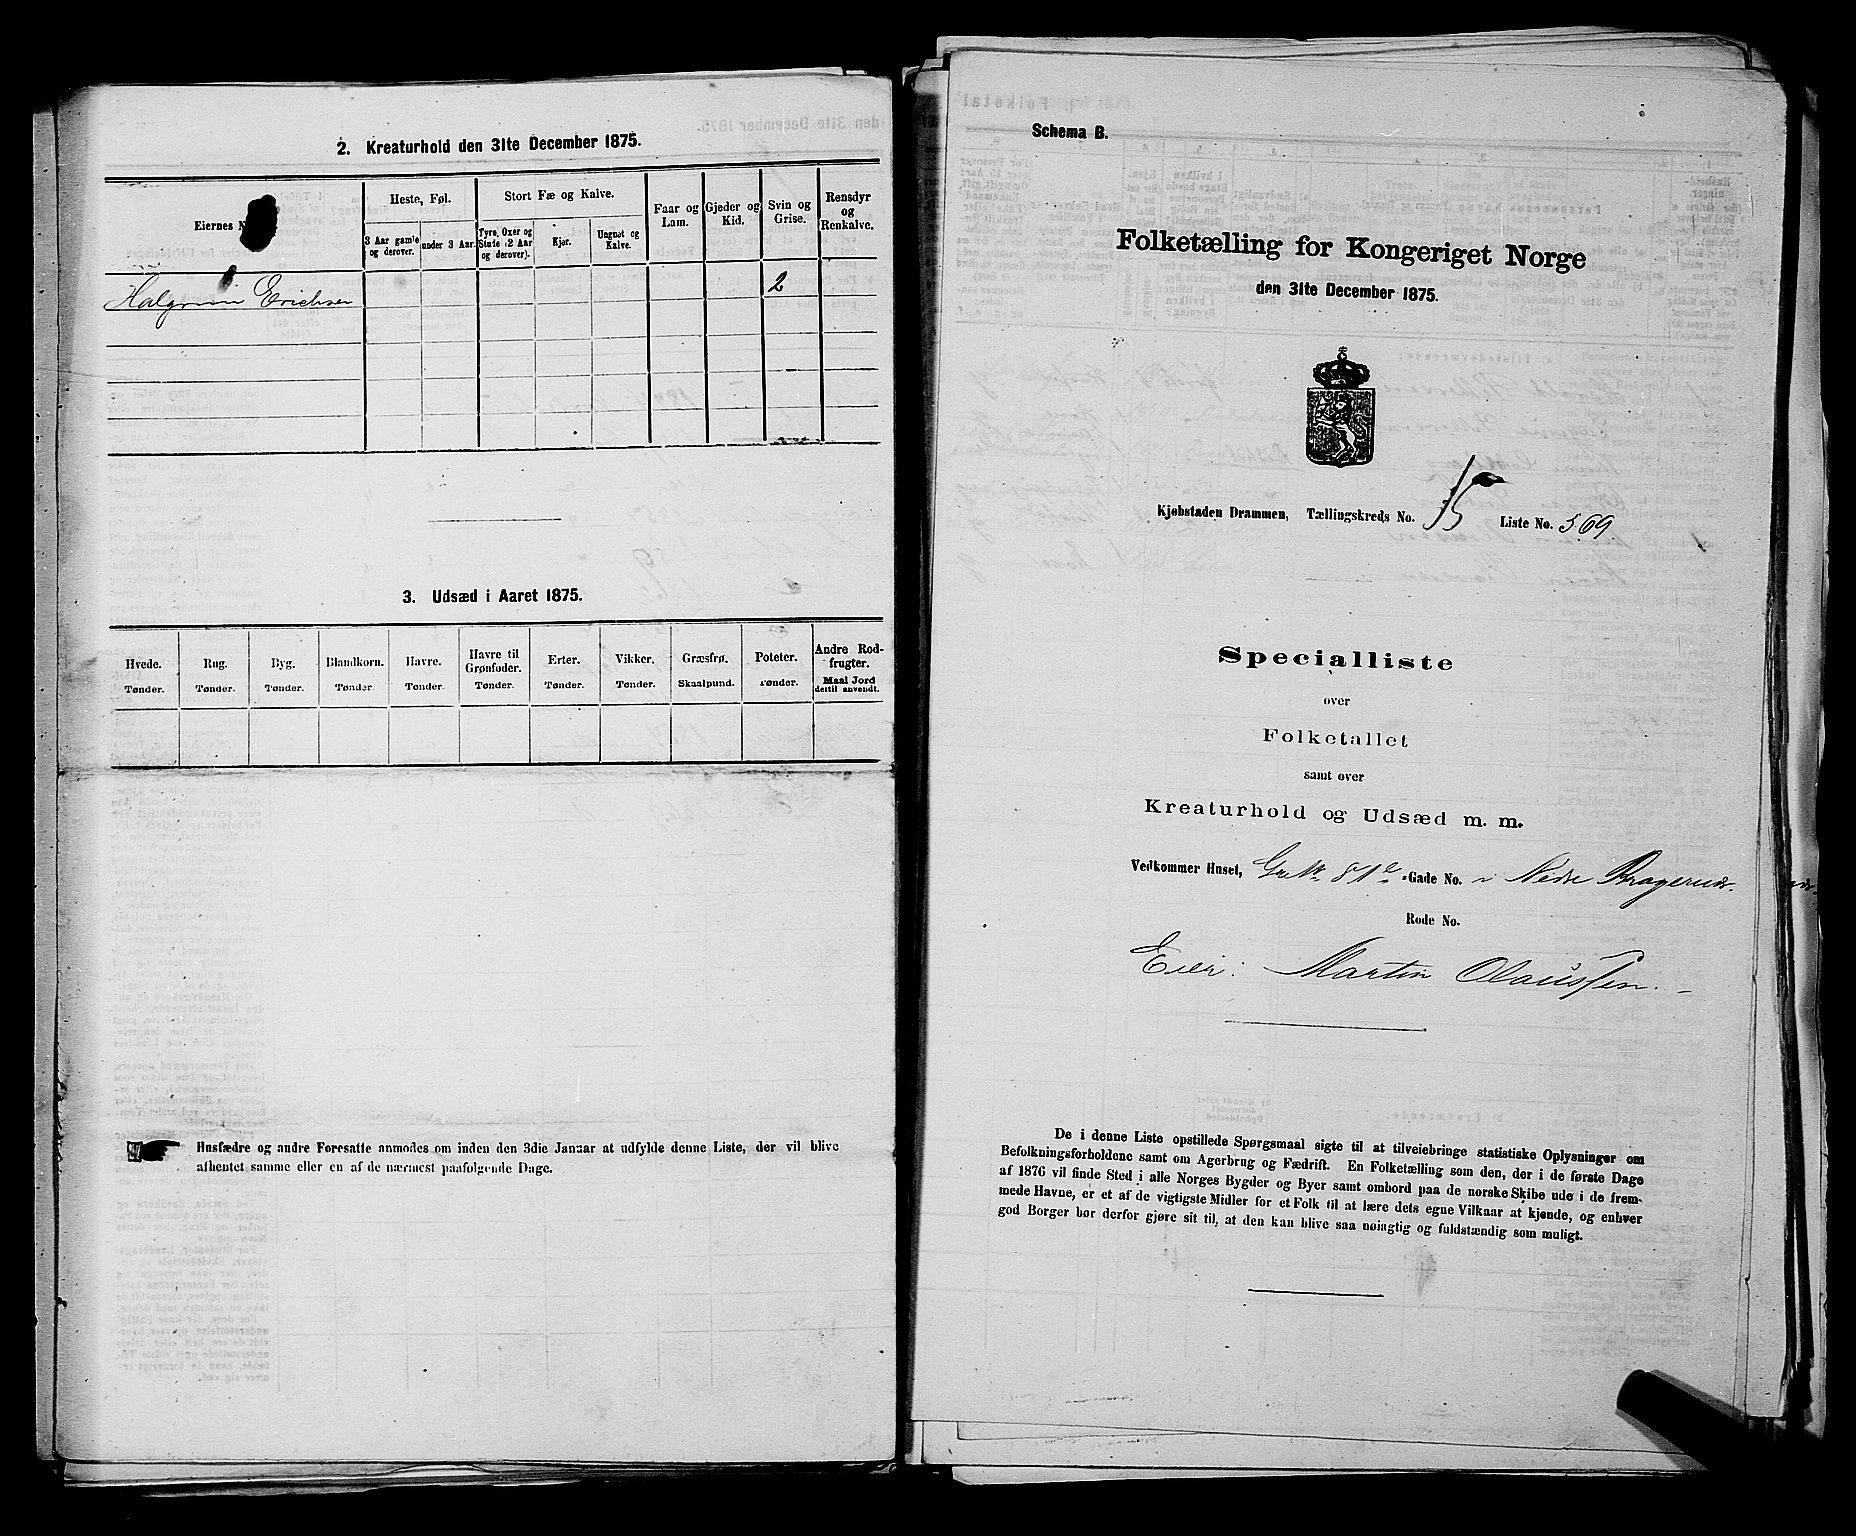 2. Kreaturhold den 31te December 1875.
Eiernes
Heste, Føl.
Stort Fæ og Kalve.
Faar og Lam.
Gjeder og Kid.
Svin og Grise.
Rensdyr og Renkalve.
3 Aar gamle og derover.
under 3 Aar.
Tyre, Oxer og Stude (2 Aar og derover).
Kjør.
Ungnøt og Kalve.
Erichsen 2
3. Udsæd i Aaret 1875.
Hvede. Rug. Byg. Blandkorn. Havre. Havre til Grønfoder. Erter. Vikker. Græsfrø. Poteter. Andre Rodfrugter.
Tønder. Tønder. Tønder. Tønder. Tønder. Tønder. Tønder. Tønder. Skaalpund. Tønder. Maal Jord dertil anvendt.
Husfædre og andre Foresatte anmodes om inden den 3die Januar at udfylde denne Liste, der vil blive
afhentet samme eller en af de nærmest paafølgende Dage.
Schema B.
Folketælling for Kongeriget Norge
den 31te December 1875.
Kjøbstaden Drammen, Tællingskreds No. 15 Liste No. 569.
Specialliste
over
Folketallet
samt over
Kreaturhold og Udsæd m. m.
Vedkommer Huset, Gr. No. 81e Gade No. i Nedre Bragernæs
Rode No.
Eier: Martin Olaussen.
De i denne Liste opstillede Spørgsmaal sigte til at tilveiebringe statistiske Oplysninger om
Befolkningsforholdene samt om Agerbrug og Fædrift. En Folketælling som den, der i de første Dage
af 1876 vil finde Sted i alle Norges Bygder og Byer samt ombord paa de norske Skibe ude i de frem-
mede Havne, er et af de vigtigste Midler for et Folk til at lære dets egne Vilkaar at kjende, og enhver
god Borger bør derfor gjøre sit til, at den kan blive saa nøiagtig og fuldstændig som muligt.